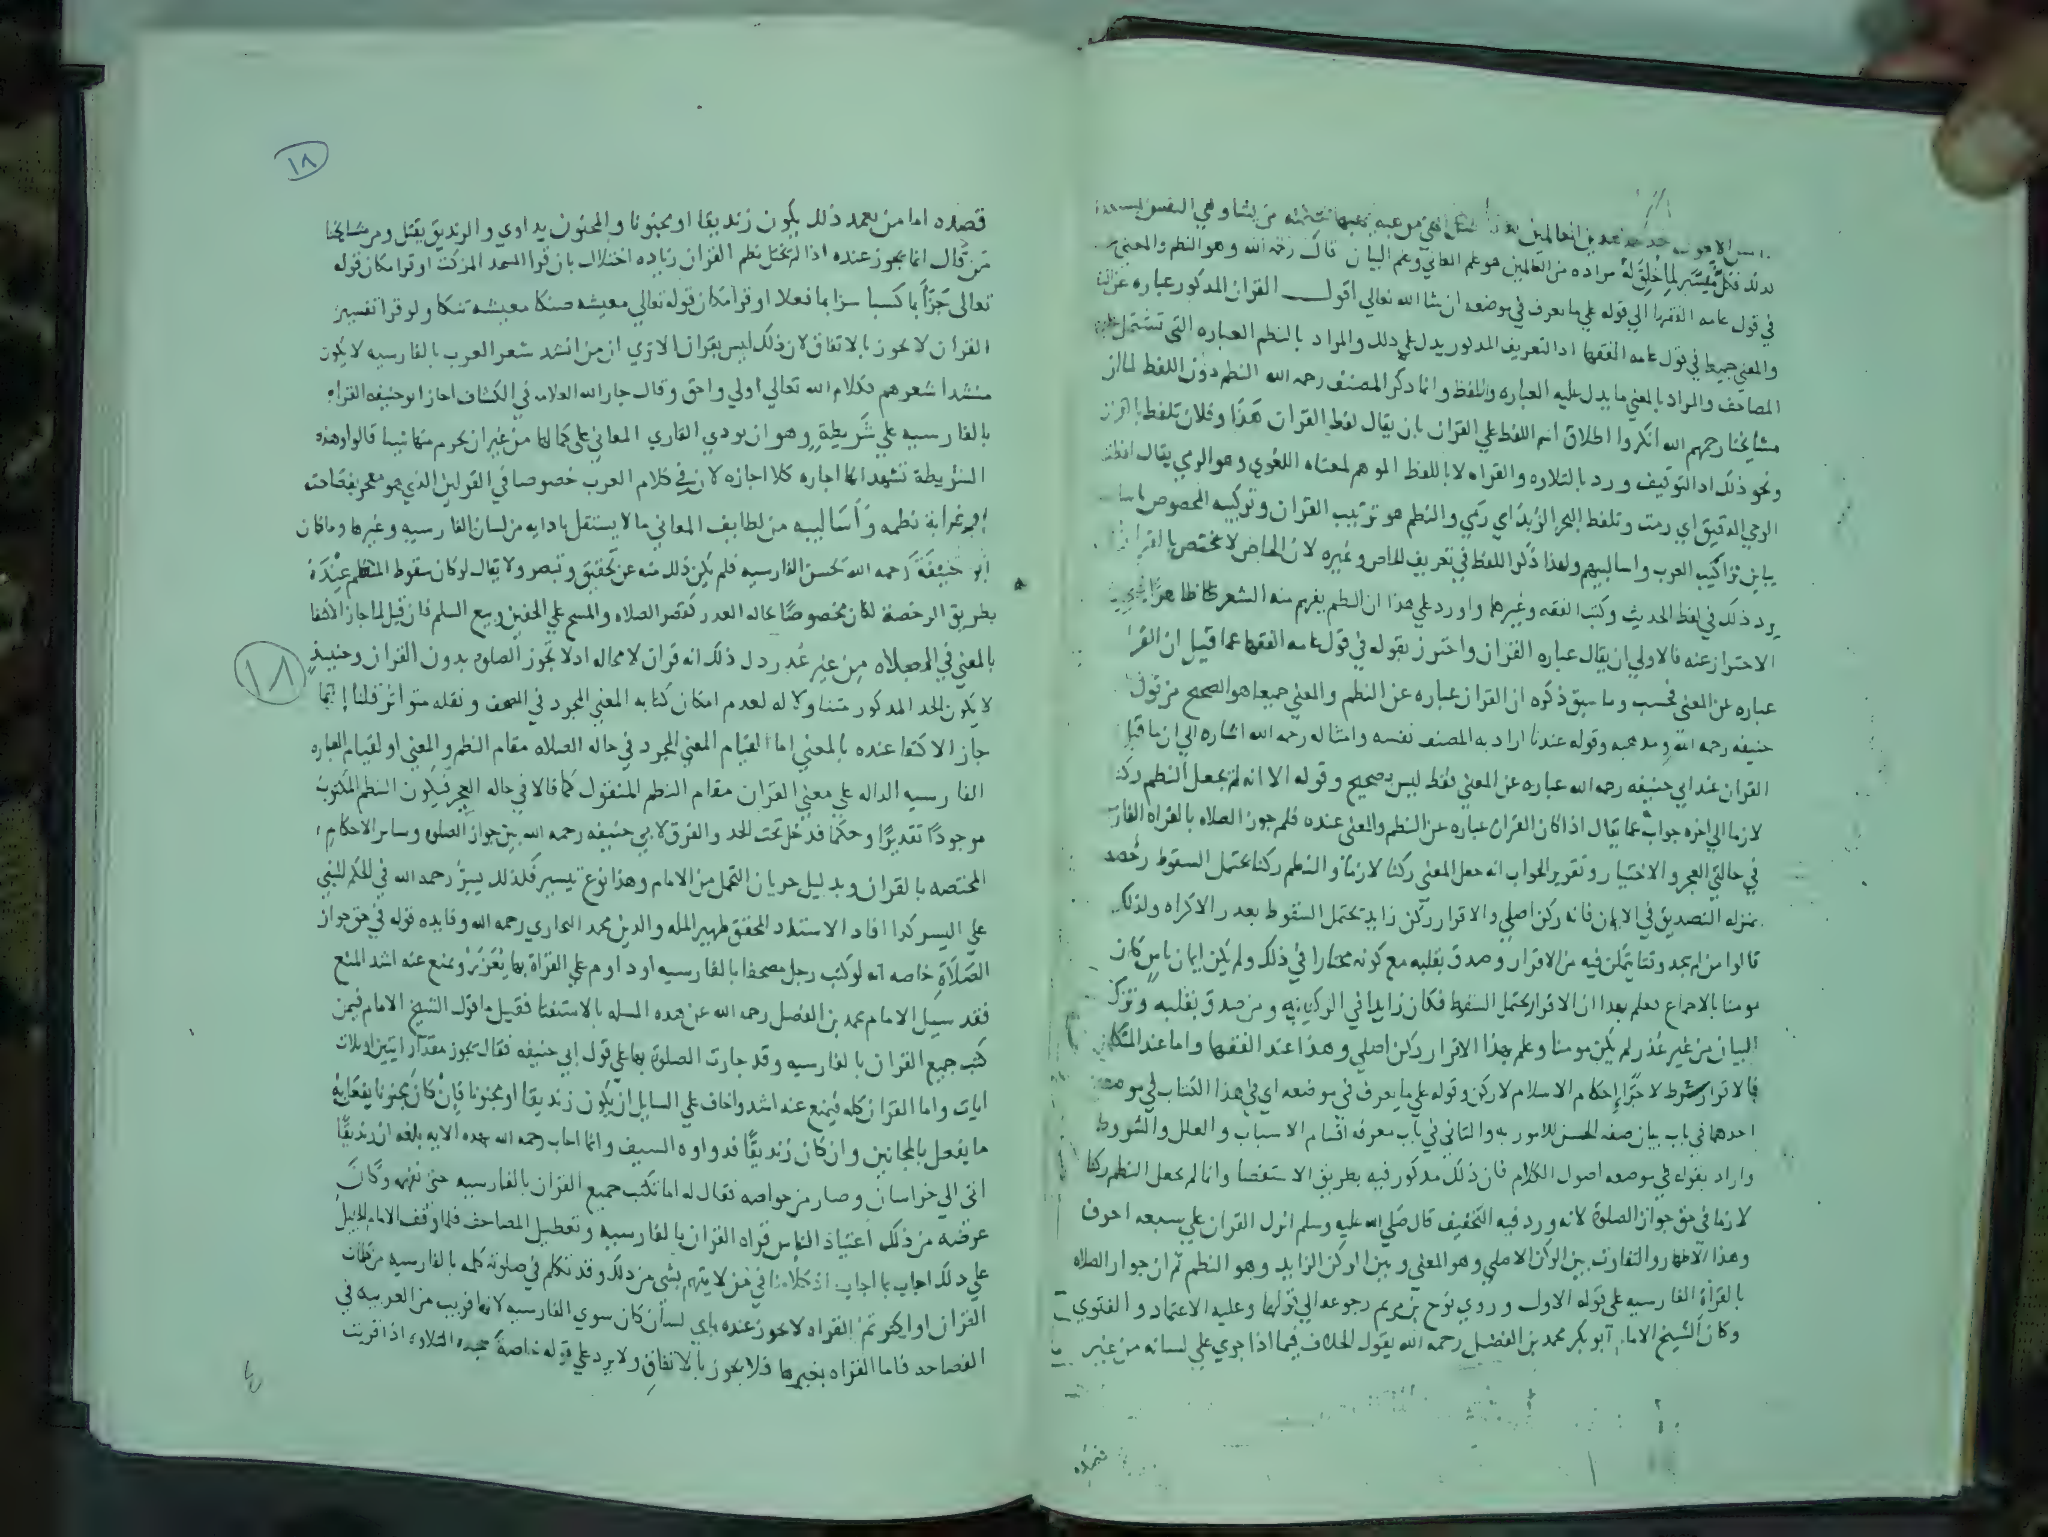 لذلك فكل ميسر لما خلق له مراده من العالمين هو علم المعاني وعلم البيان قال رحمه الله وهو النظم والمعنى
في قول عامة الفقها الي قوله علي ما يعرف في موضعه ان شا الله تعالي اقول القران المذكور عباره عن
والمعني جميعا في قول عامه الفقها اذ التعريف المذكور يدل علي ذلك والمراد بالنظم العباره التي تشتمل
المصاحف والمراد بالمعني ما يدل عليه العباره واللفظ وانما ذكر المصنف رحمه الله النظم دون اللفظ لما ان
مشايخنا رحمهم الله انكروا اطلاق اسم اللفظ علي القران بان يقال لفظ القران هذا وفلان تلفظ
ونحو ذلك اذ التوقيف ورد بالتلاوه والقراه لا باللفظ الموهم لمعناه اللغوي وهو الرمي يقال لفظت
الرحي الدقيق اي رمت وتلفظ البحر الزبد اي رمي والنظم هو ترتيب القران وتركيبه المخصوص
يباين تراكيب العرب واساليبهم ولهذا ذكر اللفظ في تعريف الخاص وغيره لان الخاص لا يختص بالقران
يرد ذلك في لفظ الحديث وكتب الفقه وغيرها واورد علي هذا ان النظم يفهم منه الشعر ظاهرا
الاحتراز عنه فالاولي ان يقال عباره القران واحترز بقوله في قول عامه الفقها عما قيل ان
عباره عن المعني فحسب وما سبق ذكره ان القران عباره عن النظم والمعني جميعا هو الصحيح من قول
حنيفه رحمه الله ومذهبه وقوله عندنا اراد به المصنف نفسه وامثاله رحمه الله اشاره الي ان ما قيل
القران عند ابي حنيفه رحمه الله عباره عن المعني فقط ليس بصحيح وقوله الا انه لم يجعل النظم ركنا
لازما الي اخره جواب عما يقال اذا كان القران عباره عن النظم والمعني عنده فلم جوز الصلاه بالقراه
في حالتي العجز والاختيار وتقرير الجواب انه جعل المعني ركنا لازما والنظم ركنا يحتمل السقوط رخصه
بمنزله التصديق في الايمان فانه ركن اصلي والاقرار ركن زايد يحتمل السقوط بعذر الاكراه ولذلك
قالوا من لم يجد وقتا يتمكن فيه من الاقرار وصدق بقلبه مع كونه مختارا في ذلك ولم يكن ايمان ياس كان
مومنا بالاجماع فعلم بهذا ان الاقرار يحتمل السقوط فكان زايدا في الركنيه ومن صدق بقلبه وترك
البيان من غير عذر لم يكن مومنا وعلم بهذا الاقرار ركن اصلي وهذا عند الفقها واما عند
فالاقرار شرط لاجرا احكام الاسلام لا ركن وقوله علي ما يعرف في موضعه اي في هذا الكتاب في موضعين
احدهما في باب بيان صفه الحسن للمامور به والثاني في باب معرفه اقسام الاسباب والعلل والشروط
واراد بقوله في موضعه اصول الكلام فان ذلك مذكور فيه بطريق الاستقصا وانما لم يجعل النظم ركنا
لازما في حق جواز الصلوة لانه ورد فيه التخفيف قال صلي الله عليه وسلم انزل القران علي سبعه احرف
وهذا لاظهار التفاوت بين الركن الاصلي وهو المعني وبين الركن الزايد وهو النظم ثم ان جواز الصلاه
بالقراة الفارسيه علي قوله الاول وروي نوح بن مريم رجوعه الي قولهما وعليه الاعتماد والفتوي
وكان الشيخ الامام ابو بكر محمد بن الفضل رحمه الله يقول الخلاف فيما اذا جري علي لسانه من غير
قصده
١٨
قصده اما من تعمد ذلك يكون زنديقا او مجنونا والمجنون يداوي والزنديق يقتل ومن مشايخنا
من قال انما يجوز عنده اذا لم يختل نظم القران زياده اختلال بان قرا مكان قوله
تعالى جزآ بما كسبا سزا بما فعلا او قرا مكان قوله تعالي معيشه ضنكا معيشه تنكا ولو قرا تفسير
القران لا يجوز بالاتفاق لان ذلك ليس بقران الا تري ان من انشد شعر العرب بالفارسيه لا يكون
منشدا شعرهم فكلام الله تعالي اولي واحق وقال جار الله العلامه في الكشاف اجاز ابو حنيفه القراه
بالفارسيه علي شريطة وهو ان يودي القاري المعاني علي كمالها من غير ان يخرم منها شيا قالوا وهذه
الشريطة تشهد انها اجازه كلا اجازه لان في كلام العرب خصوصا في القران الذي هو معجز بفصاحته
وغرابة نظمه وأساليبه من لطايف المعاني ما لا يستقل بادايه من لسان الفارسيه وغيرها وما كان
ابو حنيفة رحمه الله يحسن الفارسيه فلم يكن ذلك منه عن تحقيق وتبصر ولا يقال لو كان سقوط النظم عنده
بطريق الرخصة لكان مخصوصا بحاله العذر كقصر الصلاه والمسح علي الخفين وبيع السلم فان قيل لما جاز الاكتفا
بالمعني في الصلاه من غير عذر دل ذلك انه قران لا محاله اذ لا تجوز الصلوة بدون القران وحينيذ
١٨
لا يكون الحد المذكور متناولا له لعدم امكان كتابه المعني المجرد في المصحف ونقله متواتر قلنا إنما
جاز الاكتفا عنده بالمعني اما لقيام المعني المجرد في حاله الصلاه مقام النظم والمعني او لقيام العباره
الفارسيه الداله علي معني القران مقام النظم المنقول كما قالا في حاله العجز فيكون النظم المكتوب
موجودا تقديرا وحكما فدخل تحت الحد والفرق لابي حنيفه رحمه الله بين جواز الصلوة وساير الاحكام
المختصه بالقران وبدليل جريان التحمل من الامام وهذا نوع تيسير فلذلك يسر رحمه الله في الحكم المبني
علي اليسر كذا افاد الاستاد المحقق ظهير المله والدين محمد البخاري رحمه الله وفايده قوله في حق جواز
الصلاة خاصه انه لو كتب رجل مصحفا بالفارسيه او داوم علي القراة بها يعزر ويمنع عنه اشد المنع
فقد سيل الامام محمد بن الفضل رحمه الله عن هذه المسله بالاستفتا فقيل ما قول الشيخ الامام فيمن
كتب جميع القران بالفارسيه وقد جازت الصلوة بها علي قول ابي حنيفه فقال يجوز مقدار ايتين او ثلاث
ايات واما القران كله فيمنع عنه اشد واخاف علي السايل ان يكون زنديقا او مجنونا فإن كان مجنونا يفعل به
ما يفعل بالمجانين وان كان زنديقا فدواوه السيف وانما اجاب رحمه الله بهذه الايه بلغه ان زنديقا
اتي الي خراسان وصار من خواصه فقال له اما تكتب جميع القران بالفارسيه حتي نفهمه وكان
غرضه من ذلك اعتياد الناس قراه القران بالفارسيه وتعطيل المصاحف فلما وقف الامام الجليل
علي ذلك اجاب بما اجاب اذ كلامنا في من لا يتهم بشي من ذلك وقد تكلم في صلوته كلمه بالفارسيه من كلمات
القران او اكثر ثم القراه لا يجوز عنده باي لسان كان سوي الفارسيه لانها قريب من العربيه في
الفصاحه فاما القراه بغيرها فلا يجوز بالاتفاق ولا يرد علي قوله خاصة سجده التلاوه اذا قريت